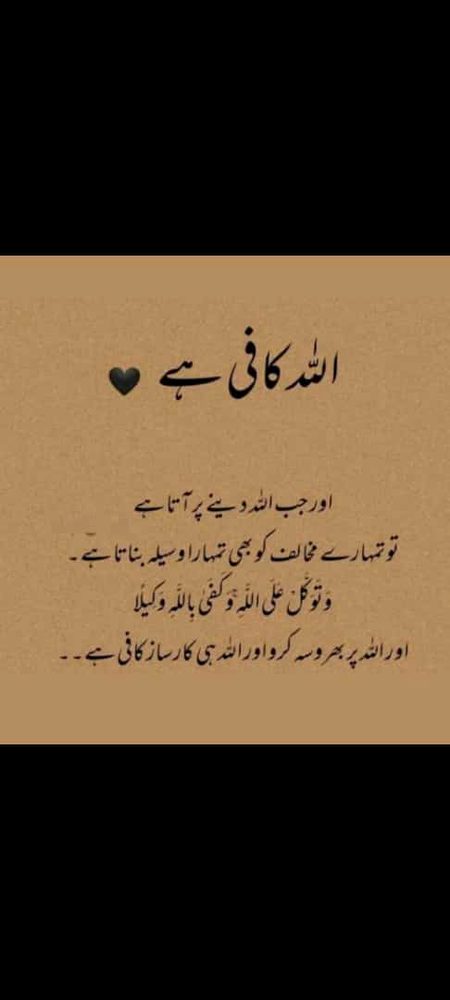 اللہ کافی ہے 🖤
اور جب اللہ دینے پر آتا ہے
تو تمہارے مخالف کو بھی تمہارا وسیلہ بناتا ہے ۔
وَتَوَكَّلْ عَلَى اللَّهِ ۚ وَكَفَىٰ بِاللَّهِ وَكِيلًا
اور اللہ پر بھروسہ کرو اور اللہ ہی کارساز کافی ہے ۔ ۔